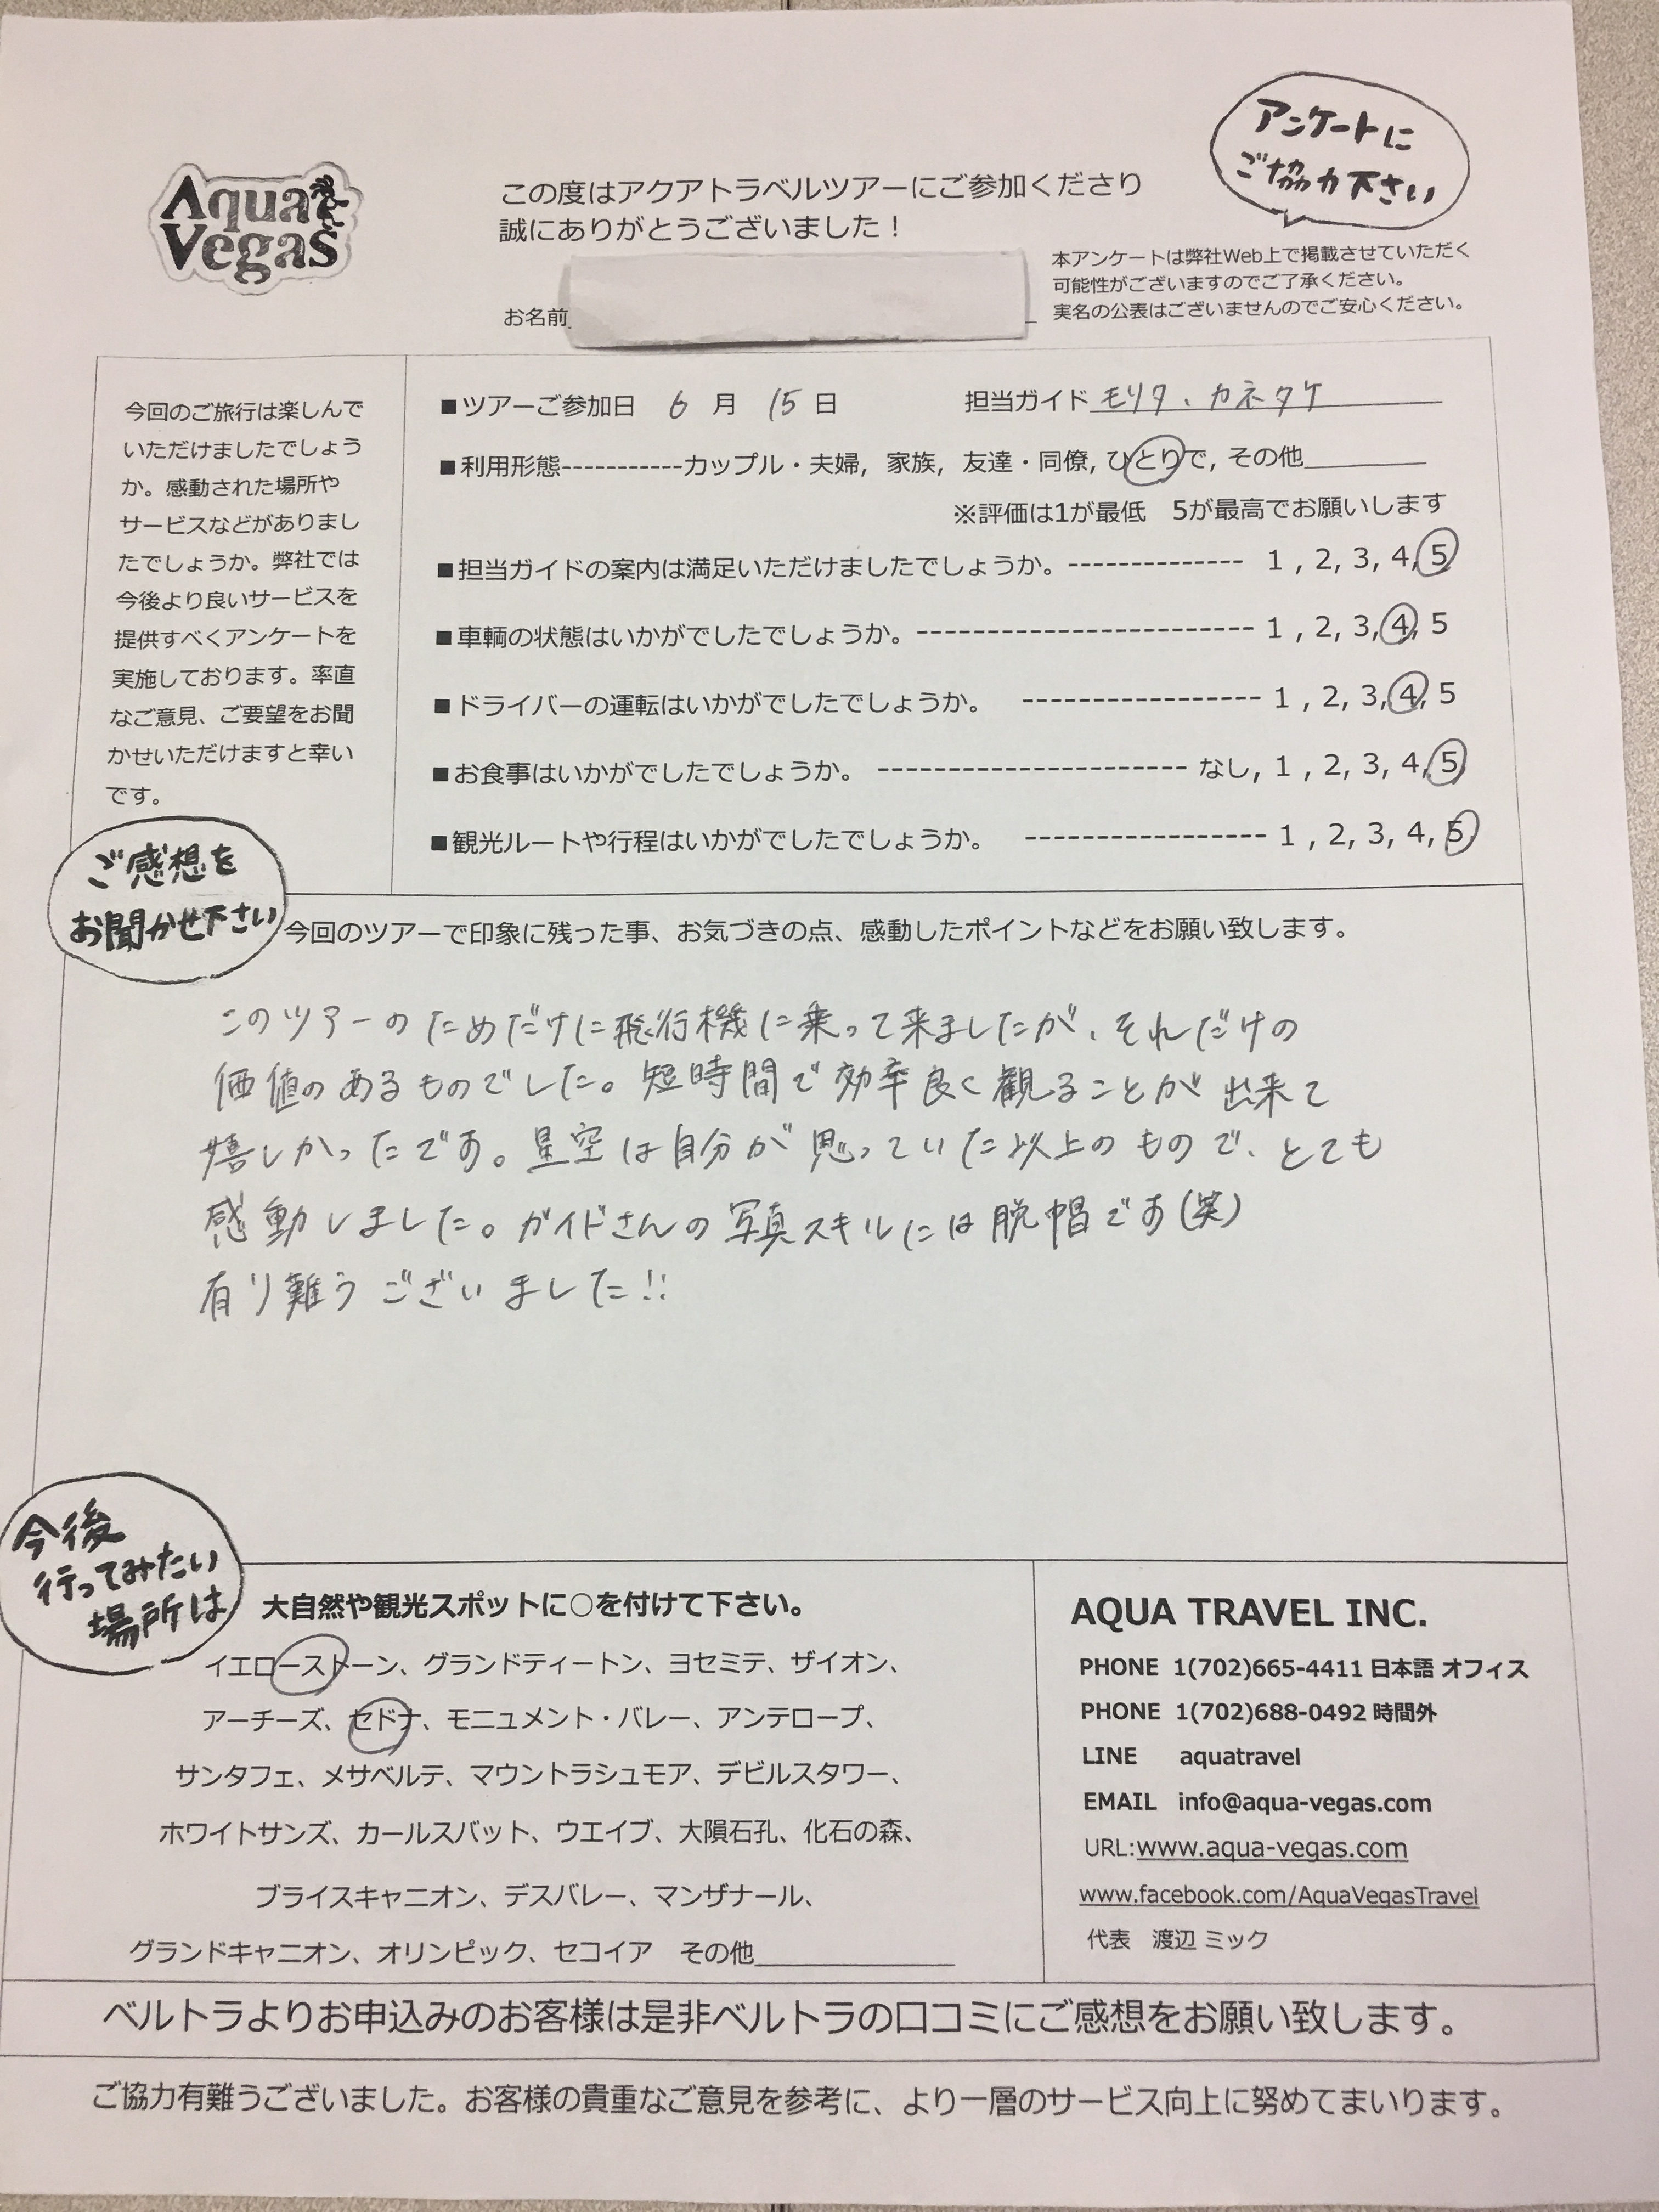 アンケートに
ご協力下さい
Aqua
Vegas
この度はアクアトラベルツアーにご参加くださり
誠にありがとうございました！
本アンケートは弊社Web上で掲載させていただく
可能性がございますのでご了承ください。
実名の公表はございませんのでご安心ください。
お名前
今回のご旅行は楽しんで
いただけましたでしょう
か。感動された場所や
サービスなどがありまし
たでしょうか。弊社では
今後より良いサービスを
提供すべくアンケートを
実施しております。率直
なご意見、ご要望をお聞
かせいただけますと幸い
です。
■ツアーご参加日 6 月 15 日 担当ガイド モリタ、カネタケ
■利用形態-----------カップル・夫婦, 家族, 友達・同僚, ひとりで, その他________
※評価は1が最低 5が最高でお願いします
■担当ガイドの案内は満足いただけましたでしょうか。-------------- 1 , 2, 3, 4, 5
■車輌の状態はいかがでしたでしょうか。--------------------------- 1 , 2, 3, 4, 5
■ドライバーの運転はいかがでしたでしょうか。 ------------------ 1 , 2, 3, 4, 5
■お食事はいかがでしたでしょうか。 ----------------------- なし, 1 , 2, 3, 4, 5
■観光ルートや行程はいかがでしたでしょうか。 ------------------ 1 , 2, 3, 4, 5
ご感想を
お聞かせ下さい
今回のツアーで印象に残った事、お気づきの点、感動したポイントなどをお願い致します。
このツアーのためだけに飛行機に乗って来ましたが、それだけの
価値のあるものでした。短時間で効率良く観ることが出来て
嬉しかったです。星空は自分が思っていた以上のもので、とても
感動しました。ガイドさんの写真スキルには脱帽です(笑)
有り難うございました!!
今後
行ってみたい
場所は
大自然や観光スポットに○を付けて下さい。
イエローストーン、グランドティートン、ヨセミテ、ザイオン、
アーチーズ、セドナ、モニュメント・バレー、アンテロープ、
サンタフェ、メサベルテ、マウントラシュモア、デビルスタワー、
ホワイトサンズ、カールスバット、ウエイブ、大隕石孔、化石の森、
ブライスキャニオン、デスバレー、マンザナール、
グランドキャニオン、オリンピック、セコイア その他______________
AQUA TRAVEL INC.
PHONE 1(702)665-4411 日本語 オフィス
PHONE 1(702)688-0492 時間外
LINE aquatravel
EMAIL info@aqua-vegas.com
URL:www.aqua-vegas.com
www.facebook.com/AquaVegasTravel
代表 渡辺 ミック
ベルトラよりお申込みのお客様は是非ベルトラの口コミにご感想をお願い致します。
ご協力有難うございました。お客様の貴重なご意見を参考に、より一層のサービス向上に努めてまいります。